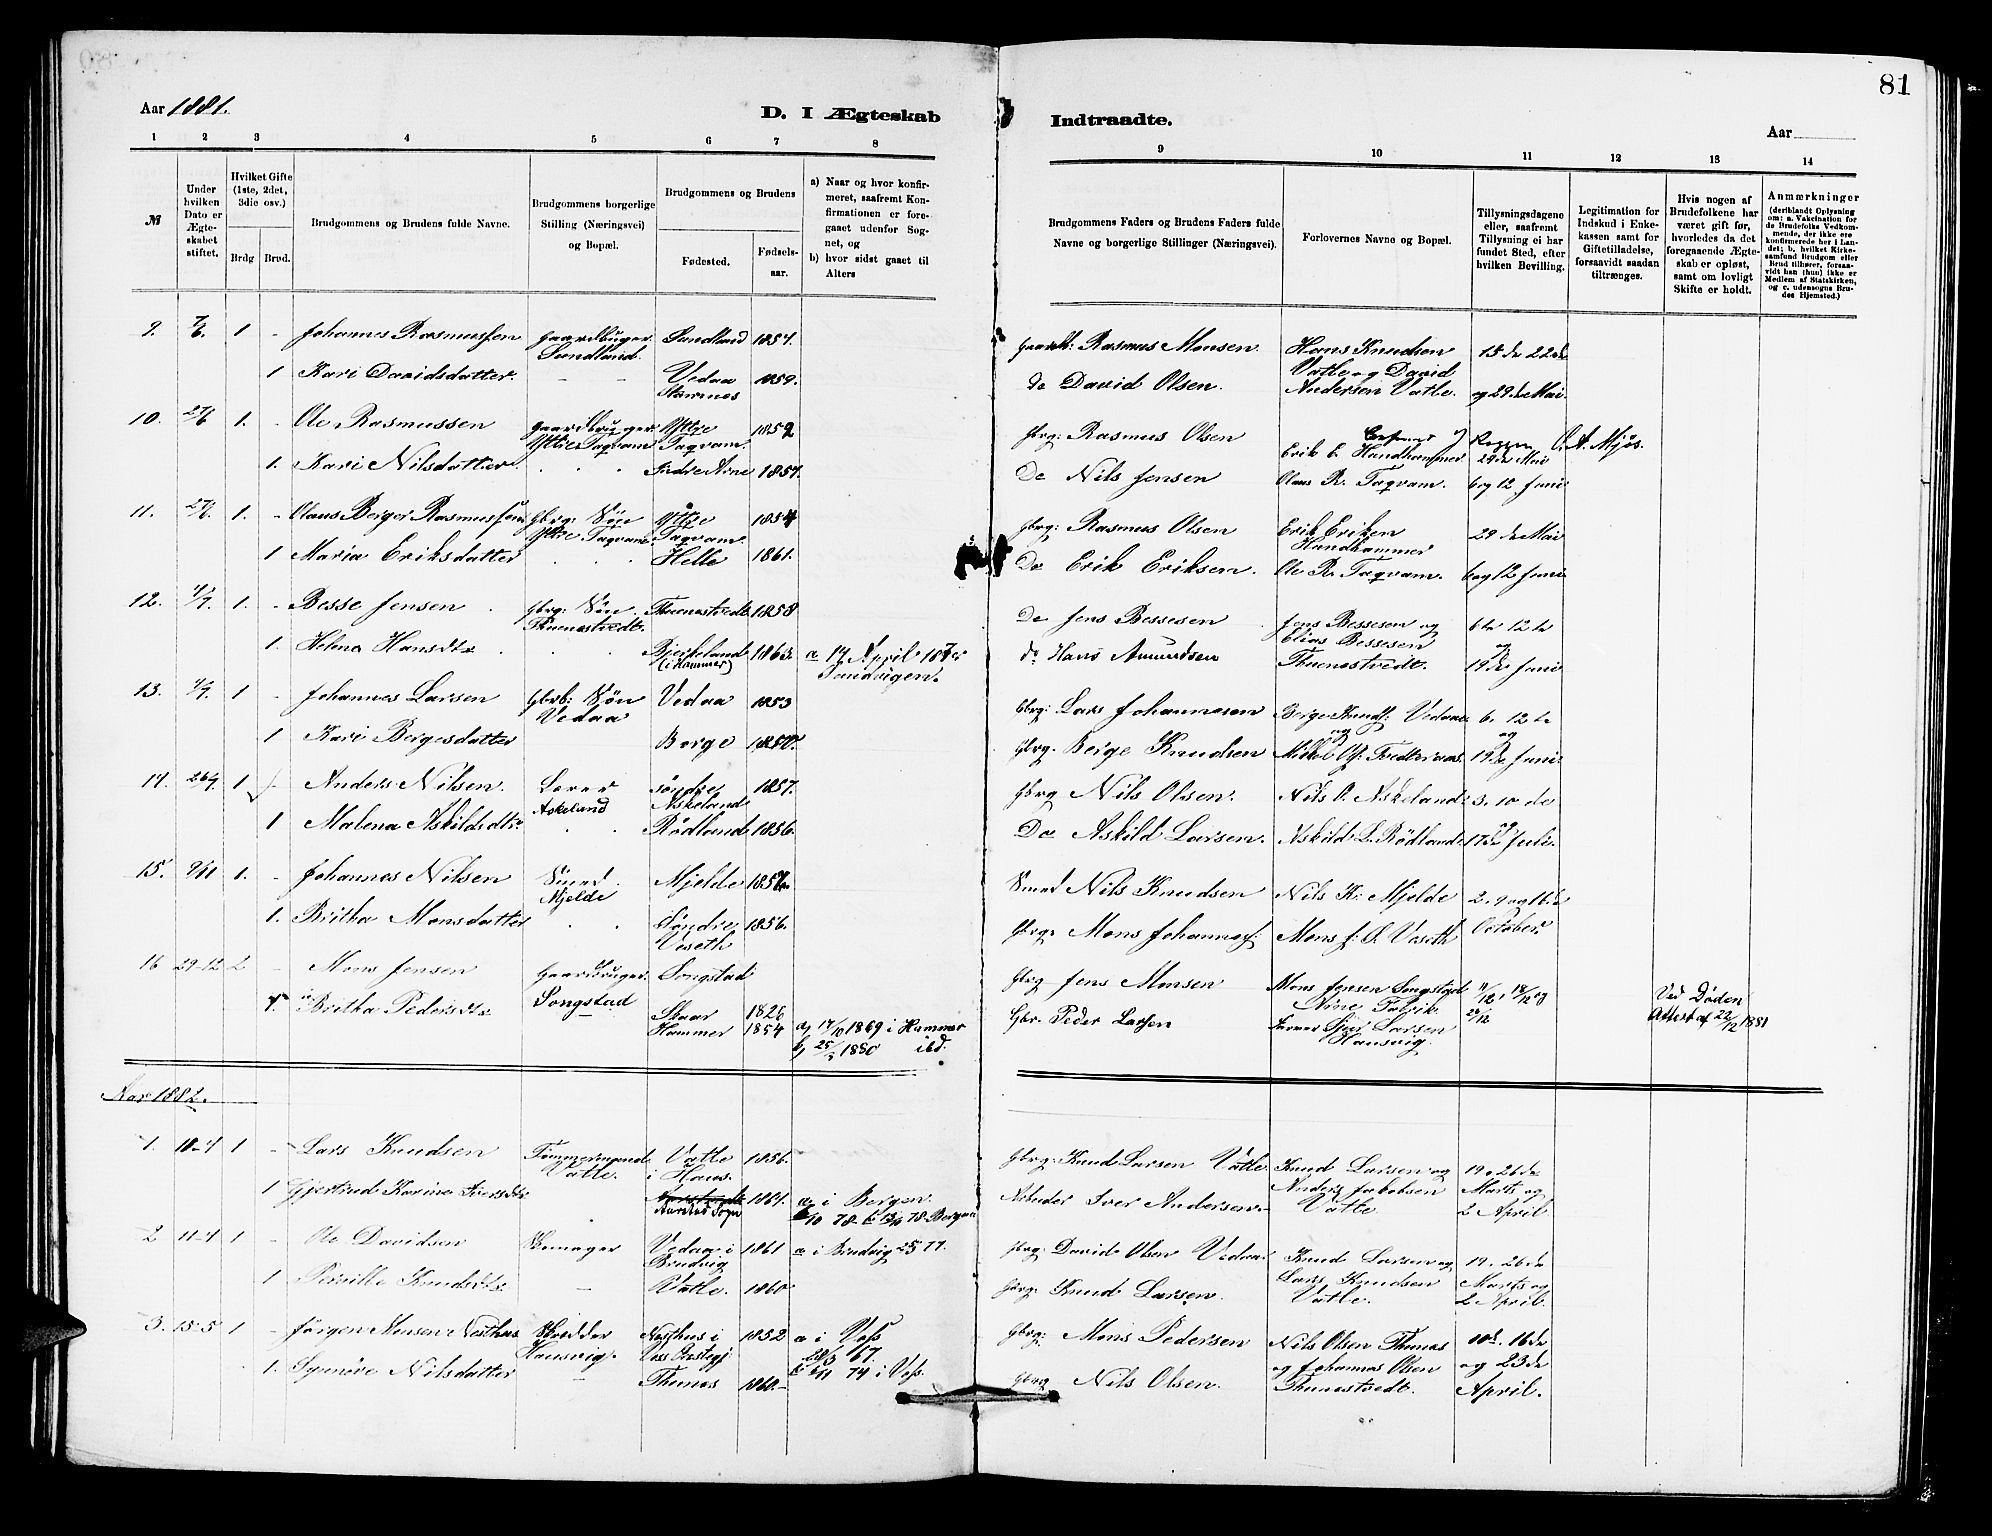 81
Aar 1881.
D. I Ægteskab
Indtraadte.
Aar
1 2 3 4 5 6 7 8
9 10 11 12 13 14
№
Under hvilken Dato er Ægteskabet stiftet.
Hvilket Gifte (1ste, 2det, 3die osv.)
Brdg Brud.
Brudgommens og Brudens fulde Navne.
Brudgommens borgerlige Stilling (Næringsvei) og Bopæl.
Brudgommens og Brudens
Fødested.
Fødselsaar.
a) Naar og hvor konfirmeret, saafremt Konfirmationen er foregaaet udenfor Sognet, og
b) hvor sidst gaaet til Alters
Brudgommens Faders og Brudens Faders fulde Navne og borgerlige Stillinger (Næringsvei).
Forlovernes Navne og Bopæl.
Tillysningsdagene eller, saafremt Tillysning ei har fundet Sted, efter hvilken Bevilling.
Legitimation for Indskud i Enkekassen samt for Giftetilladelse, forsaavidt saadan tiltrænges.
Hvis nogen af Brudefolkene har været gift før, hvorledes da det foregaaende Ægteskab er opløst, samt om lovligt Skifte er holdt.
Anmærkninger (deriblandt Oplysning om: a. Vakcination for de Brudefolks Vedkommende, der ikke ere konfirmerede her i Landet; b. hvilket Kirkesamfund Brudgom eller Brud tilhører, forsaavidt han (hun) ikke er Medlem af Statskirken, og c. udensogns Brudes Hjemsted.)
9. 7/6. 1 - Johannes Rasmussen Gaardbruger Sundland. Sundland 1854. Gaardb: Rasmus Monsen Hans Knudsen 15de 22de
1 Kari Davidsdatter. - - Vedaa Stamnes 1859. de David Olsen. Vatle og David Andersen Vatle. og 29de Mai
10. 27/6 1. - Ole Rasmussen Gaardbruger Yttre Taqvam Yttre Taqvam. 1852 Gbrg: Rasmus Olsen Erik E. Handhammer 29de Mai O. A. Mjøs.
1. Kari Nilsdatter . . . Indre Arne 1857. De Nils Jensen Olaus R. Taqvam. 6 og 12 Juni
11. 27/6. 1. - Olaus Berger Rasmussen Gbrg: Søn Yttre Taqvam. Yttre Taqvam. 1854 Gbrg: Rasmus Olsen Erik Eriksen Handhammer 29 de Mai
1 Maria Eriksdatter . . . Helle 1861. Do Erik Eriksen. Ole R. Taqvam. 6 og 12 Juni
12. 4/7. 1. - Besse Jensen Gbrg: Søn Thunestvedt. Thunestvedt 1858 De Jens Bessesen Jens Bessesen og Elias Bessesen 6te 12te
1. Helena Hansdtr . . . Bjørkeland (i Hammer) 1863 a 14 April Sandvigen. do Hans Amundsen Thunestvedt. og 19de Juni
13. 4/7. 1 - Johannes Larsen Gbrb: Søn Vedaa Vedaa 1853 Gbrg: Lars Johannesen Berge Knuds: Vedaa 6. 12te
1 Kari Bergesdatter Borge 1850. Gbrg. Berge Knudsen og 19de Juni
14. 26/7. 1 - Anders Nilsen. Lærer Askeland søndre Askeland 1857. Gbrg Nils Olsen. Nils O. Askeland 3. 10 de
1 Malena Askildsdtr . . Rødland 1856. Do Askild Larsen. Askild L. Rødland og 17de Juli.
15. 9/11 1. - Johannes Nilsen Smed. Mjelde Mjelde 1857 Smed Nils Knudsen Nils K. Mjelde 2. 9 og 16de
1. Britha Monsdatter . . Søndre Veseth 1856. Gbrg. Mons Johannes: Mons J. Ø. Veseth October.
16 29-12 2 - Mons Jensen Gaardbruger Songstad Songstad Gbrg Jens Monsen Mons Jensen Songstad 11/12, 18/12 og
Britha Pedersdtr Skaar Hammer 1826 1854 a, 14/10 1869 i Hammer b, 25/3 1880 ibd. Gbr. Peder Larsen Larsen Hansvig. 22/12 Ved Døden Attest af 22/12 1881
Aar 1882.
1. 10-4 1 - Lars Knudsen Tømmermand Vatle. Vatle i Haus. 1856. Gbrg: Knud Larsen Vatle Knud Larsen og 19. 26de
1 Gjertrud Karine Iversdtr Aarstad Sogn 1861. a, i Bergen. 78- 78-Bergen Arbeider Iver Andersen. Anders Jakobsen Vatle. Marts og 2 April
2 11-4 1 - Ole Davidsen Skomager Vedaa i Bruvig 1861 a i Bruvig 25/ 77. Gbrg: David Olsen Vedaa Knud Larsen og 19. 26de
1 Pernille Knudsdtr - Vatle. 1860 Gbrg: Knud Larsen. Lars Knudsen Vatle. Marts og 2 April.
3. 15-5 1 - Jørgen Monsen Nesthus Skredder Hansvig. Nesthus i Voss Prestegj: 1852 a i Voss 67. Gbrg: Mons Pedersen Nils Olsen Thunes 10de. 16de
1. Synnøve Nilsdatter - Thunes 1860- 6/11 74 i Voss. Gbrg Nils Olsen. og Johannes Olsen Thunestvedt. og 23de April.